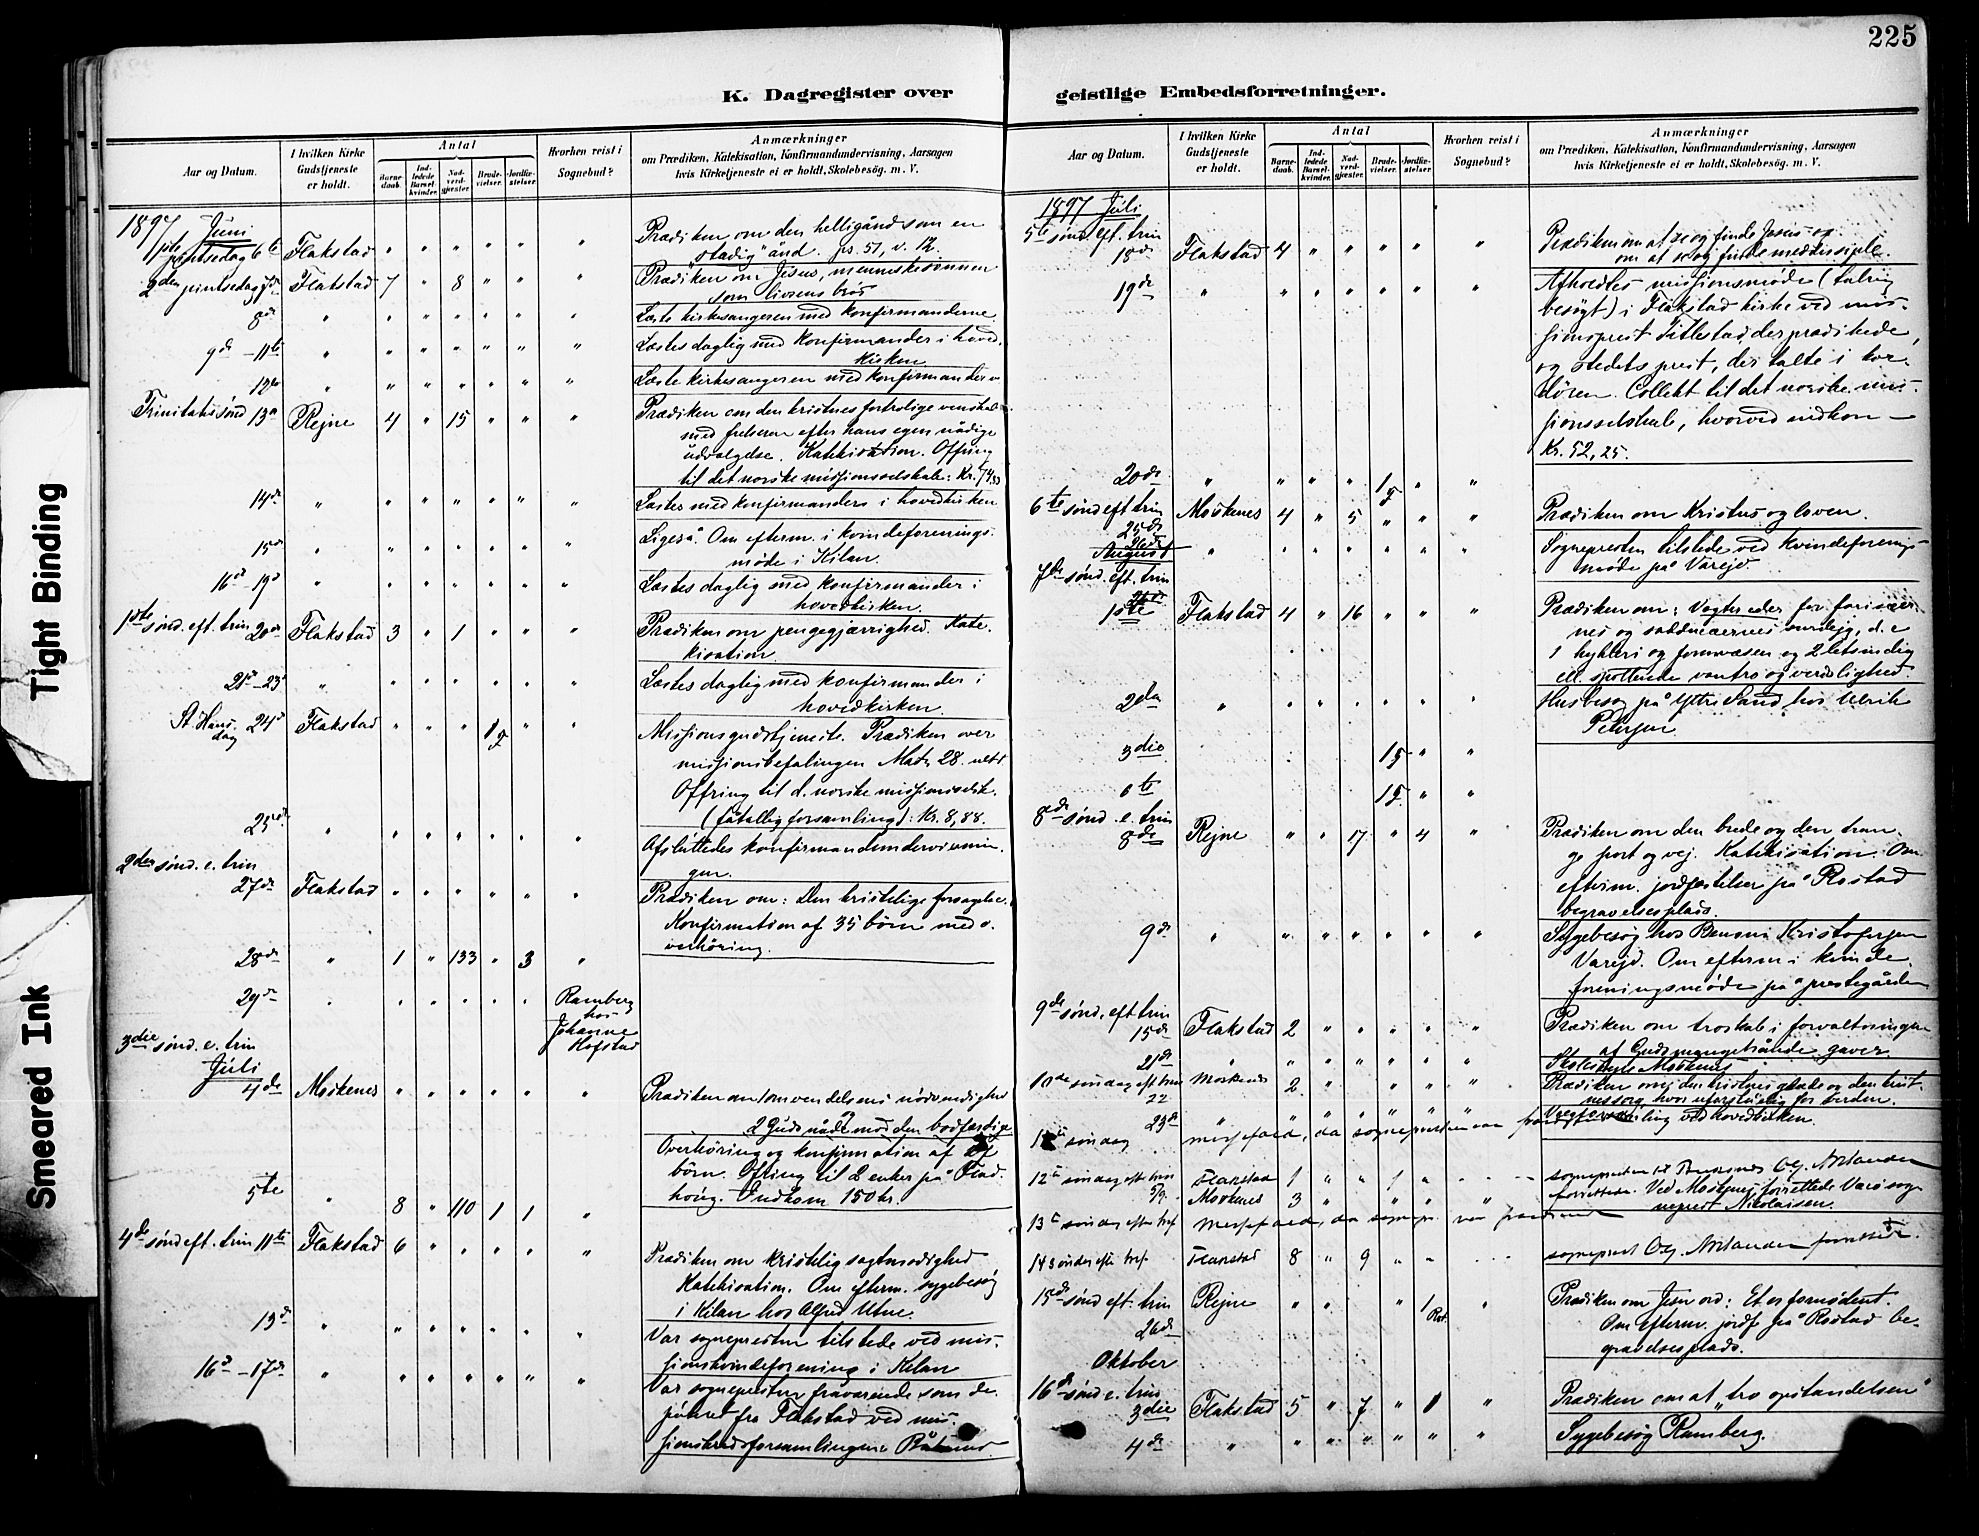 225
K. Dagregister over
geistlige Embedsforretninger.
Aar og Datum.
I hvilken Kirke Gudstjeneste er holdt.
Antal
Barnedaab.
Indledede Barselkvinder.
Nadverdgjæster.
Brudevielser.
Jordfæstelser.
Hvorhen reist i Sognebud?
Anmærkninger
om Prædiken, Katekisation, Konfirmandundervisning, Aarsagen
hvis Kirketjeneste ei er holdt, Skolebesøg. m. V.
1897 Juni
1ste pintsedag 6te Flakstad " " " " " " Prædiken om den helligånd som en
"stadig" ånd. Ps. 51, v. 12.
2den pintsedag 7de Flakstad 7 " 8 " " " Prædiken om Jesus, menneskesønnen
som livsens brød
8de " " " " " " " Læste kirkesangeren med konfirmanderne
9de - 11te " " " " " " " Læstes daglig med konfirmander i hoved-
kirken
12te " " " " " " " Læste kirkesangeren med konfirmander
Trinitatissønd 13de Rejne 4 " 15 " " " Prædiken om den kristnes fortrolige venskab
med frelseren efter hans egen nådige
udvælgelse. Katekisation. Offring
til det norske missionsselskab: Kr.
14de " " " " " " " Læstes med konfirmander i hovedkirken
15de " " " " " " " Ligeså. Om efterm. i kvindeforenings-
møde i Kilan.
16de - 19d " " " " " " " Læstes daglig med konfirmander i
hovedkirken.
1ste sønd. eft. trin 20de Flakstad 3 " 1 " " " Prædiken om pengegjærrighed. Kate-
kisation.
21d - 23d " " " " " " " Læstes daglig med konfirmander i
hovedkirken.
St. Hans- dag 24d Flakstad " " " 1 " " Missionsgudstjeneste. Prædiken over
missionsbefalingen Math. 28.
Offring til d. norske missionsselsk.
(fåtallig forsamling): Kr. 8,88.
25de " " " " " " " Afsluttedes konfirmandundervisnin-
gen.
2den sønd. e. trin
27de Flakstad " " " " " " Prædiken om: Den kristelige forsagelse.
Konfirmation af 35 børn med o-
verhøring.
28de " 1 " 133 " 3 "
29de " " " " " " Ramberg
hos
Johanne
Hofstad
3die sønd. e. trin
Juli
4de Moskenes " " " " " " Prædiken om omvendelsens nødvendighed
2 Guds nåde mod den bodfærdige
Overhøring og konfirmation af
børn. Ofring til 2 enker på
Indkom 150 kr.
5te " 8 " 110 1 1 "
4de sønd eft. trin 11te Flakstad 6 " " " " " Prædiken om kristelig sagtmodighed
Katekisation. Om efterm. sygebesøg
i Kilan hos Alfred Utne.
13d " " " " " " " Var sognepresten tilstede ved mis-
sionskvindeforening i Kilan
16d - 17de " " " " " " " Var sognepresten fraværende som de-
puteret fra Flakstad ved mis-
sionskredsforsamlingen i
1897 Juli
5te sønd. eft. trin
18de Flakstad 4 " " " " " Prædiken om at søge og finde Jesus og
om at søge og finde meddisciple.
19de " " " " " " " Afholdtes missionsmøde (talrig
besøgt) i Flakstad kirke ved mis-
sionsprest Tittestad, der prædikede,
og stedets prest, der talte i kor-
døren. Collekt til det norske mis-
sionsselskab, hvorved indkom
Kr. 52,25.
20de " " " " 1 " "
6te sønd eft trin
25de Moskenes 4 " 5 " " " Prædiken om Kristus og loven.
26de " " " " " " " Sognepresten tilstede ved kvindeforenings-
møde på Varejd.
August
7de sønd. eft. trin
1ste Flakstad 4 " 16 " " " Prædiken om: Vogter eder for farisæer-
nes og sadducæernes surdejg, d. e
1 hykleri og formvæsen og 2 letsindig
ell. spottende vantro og verdslighed.
2den " " " " " " " Husbesøg på Yttre Sand hos Ulrik
Petersen
3die 1 " "
6te 1 " "
8de sønd. e. trin
8de Rejne " " 17 " 4 " Prædiken om den brede og den tran-
ge port og vej. Katekisation. Om
efterm. jordfæstelser på Rostad
begravelsesplads.
9de " " " " " " " Sygebesøg hos Kristofersen
Varejd. Om efterm i kvinde-
foreningsmøde på prestegården
9de sønd. eft trin
15de Flakstad 2 " " " " " Prædiken om troskab i forvaltningen
af Guds mangehånde gaver.
21de " " " " " " " Moskenes
10de søndag eft trin
22 Moskenes 2 " " " " Prædiken om den kristnes glæde og den krist-
nes sorg, hvor uforståelig for verden.
23de " " " " " " " ved hovedkirken.
søndag messefald, da sognepresten var
12te søndag eft trin Flakstad 1 " " 1 "
5/9. Moskenes 3 " " " " Ved Moskenes forrettede Værø sog-
neprest Nikolaisen.
13de søndag efter tref Messefald, da sognepr. var
14 sønden efter tref. Flakstad 8 " 9 " " sogneprest O.J. Arlanden forrettede.
15de sønd eft. trin
26de Rejne " " " 1 " Prædiken om Jesu ord: Et er fornødent.
Om Efterm. jordf. på Rostad be-
gravelsesplads.
Oktober
16de sønd e. trin
3die Flakstad 5 " 7 " 1 " Prædiken om at "tro opstandelsen"
4de " " " " " " " Sygebesøg Ramberg.
Tight Binding
Smeared Ink